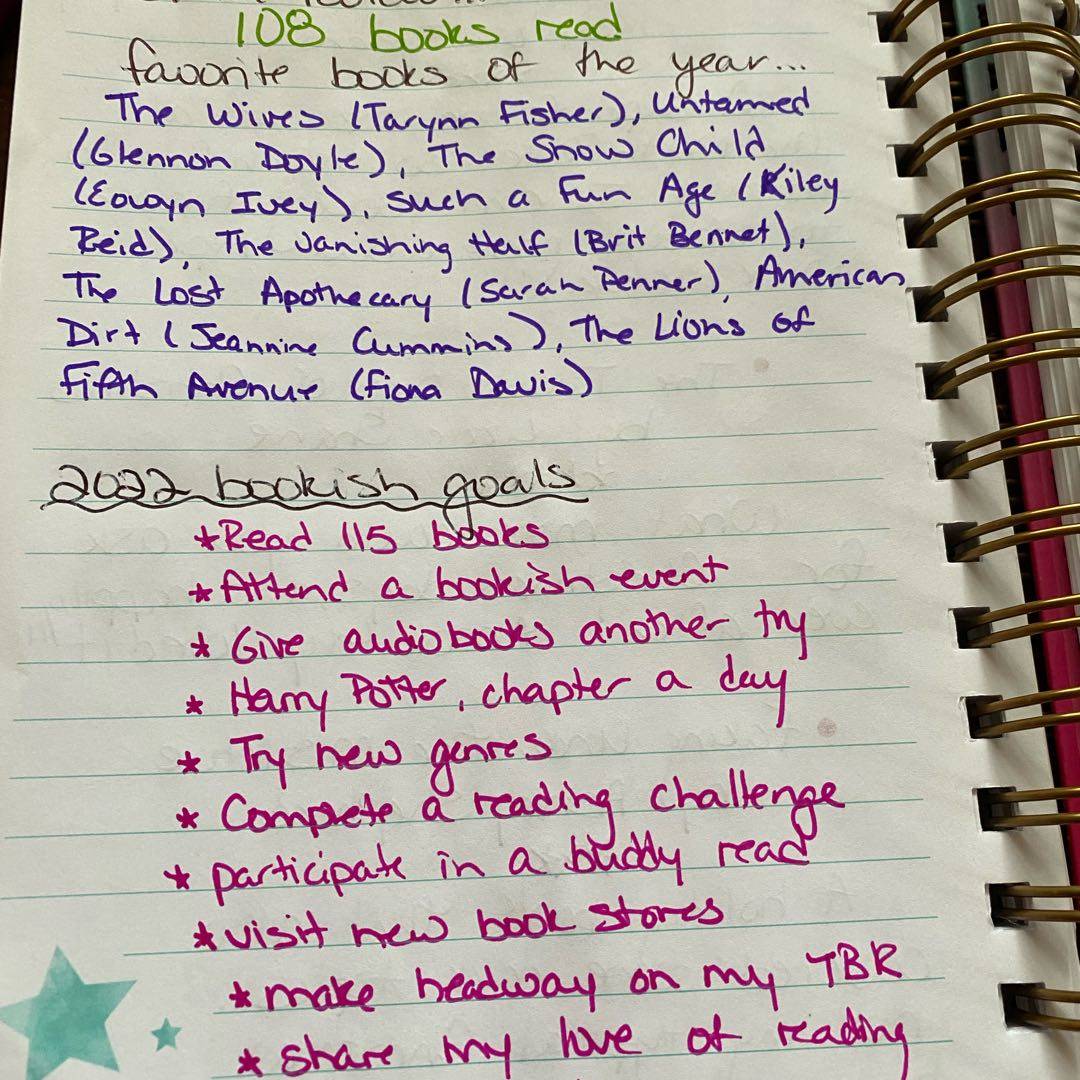 108 books read
favorite books of the year...
The Wives (Tarynn Fisher), Untamed
(Glennon Doyle), The Snow Child
(Eowyn Ivey), Such a Fun Age (Kiley
Reid), The Vanishing Half (Brit Bennet),
The Lost Apothecary (Sarah Penner), American
Dirt (Jeannine Cummins), The Lions of
Fifth Avenue (Fiona Davis)
2022 bookish goals
*Read 115 books
*Attend a bookish event
* Give audiobooks another try
* Harry Potter, chapter a day
* Try new genres
* Complete a reading challenge
* participate in a buddy read
*visit new book stores
*make headway on my TBR
* share my love of reading